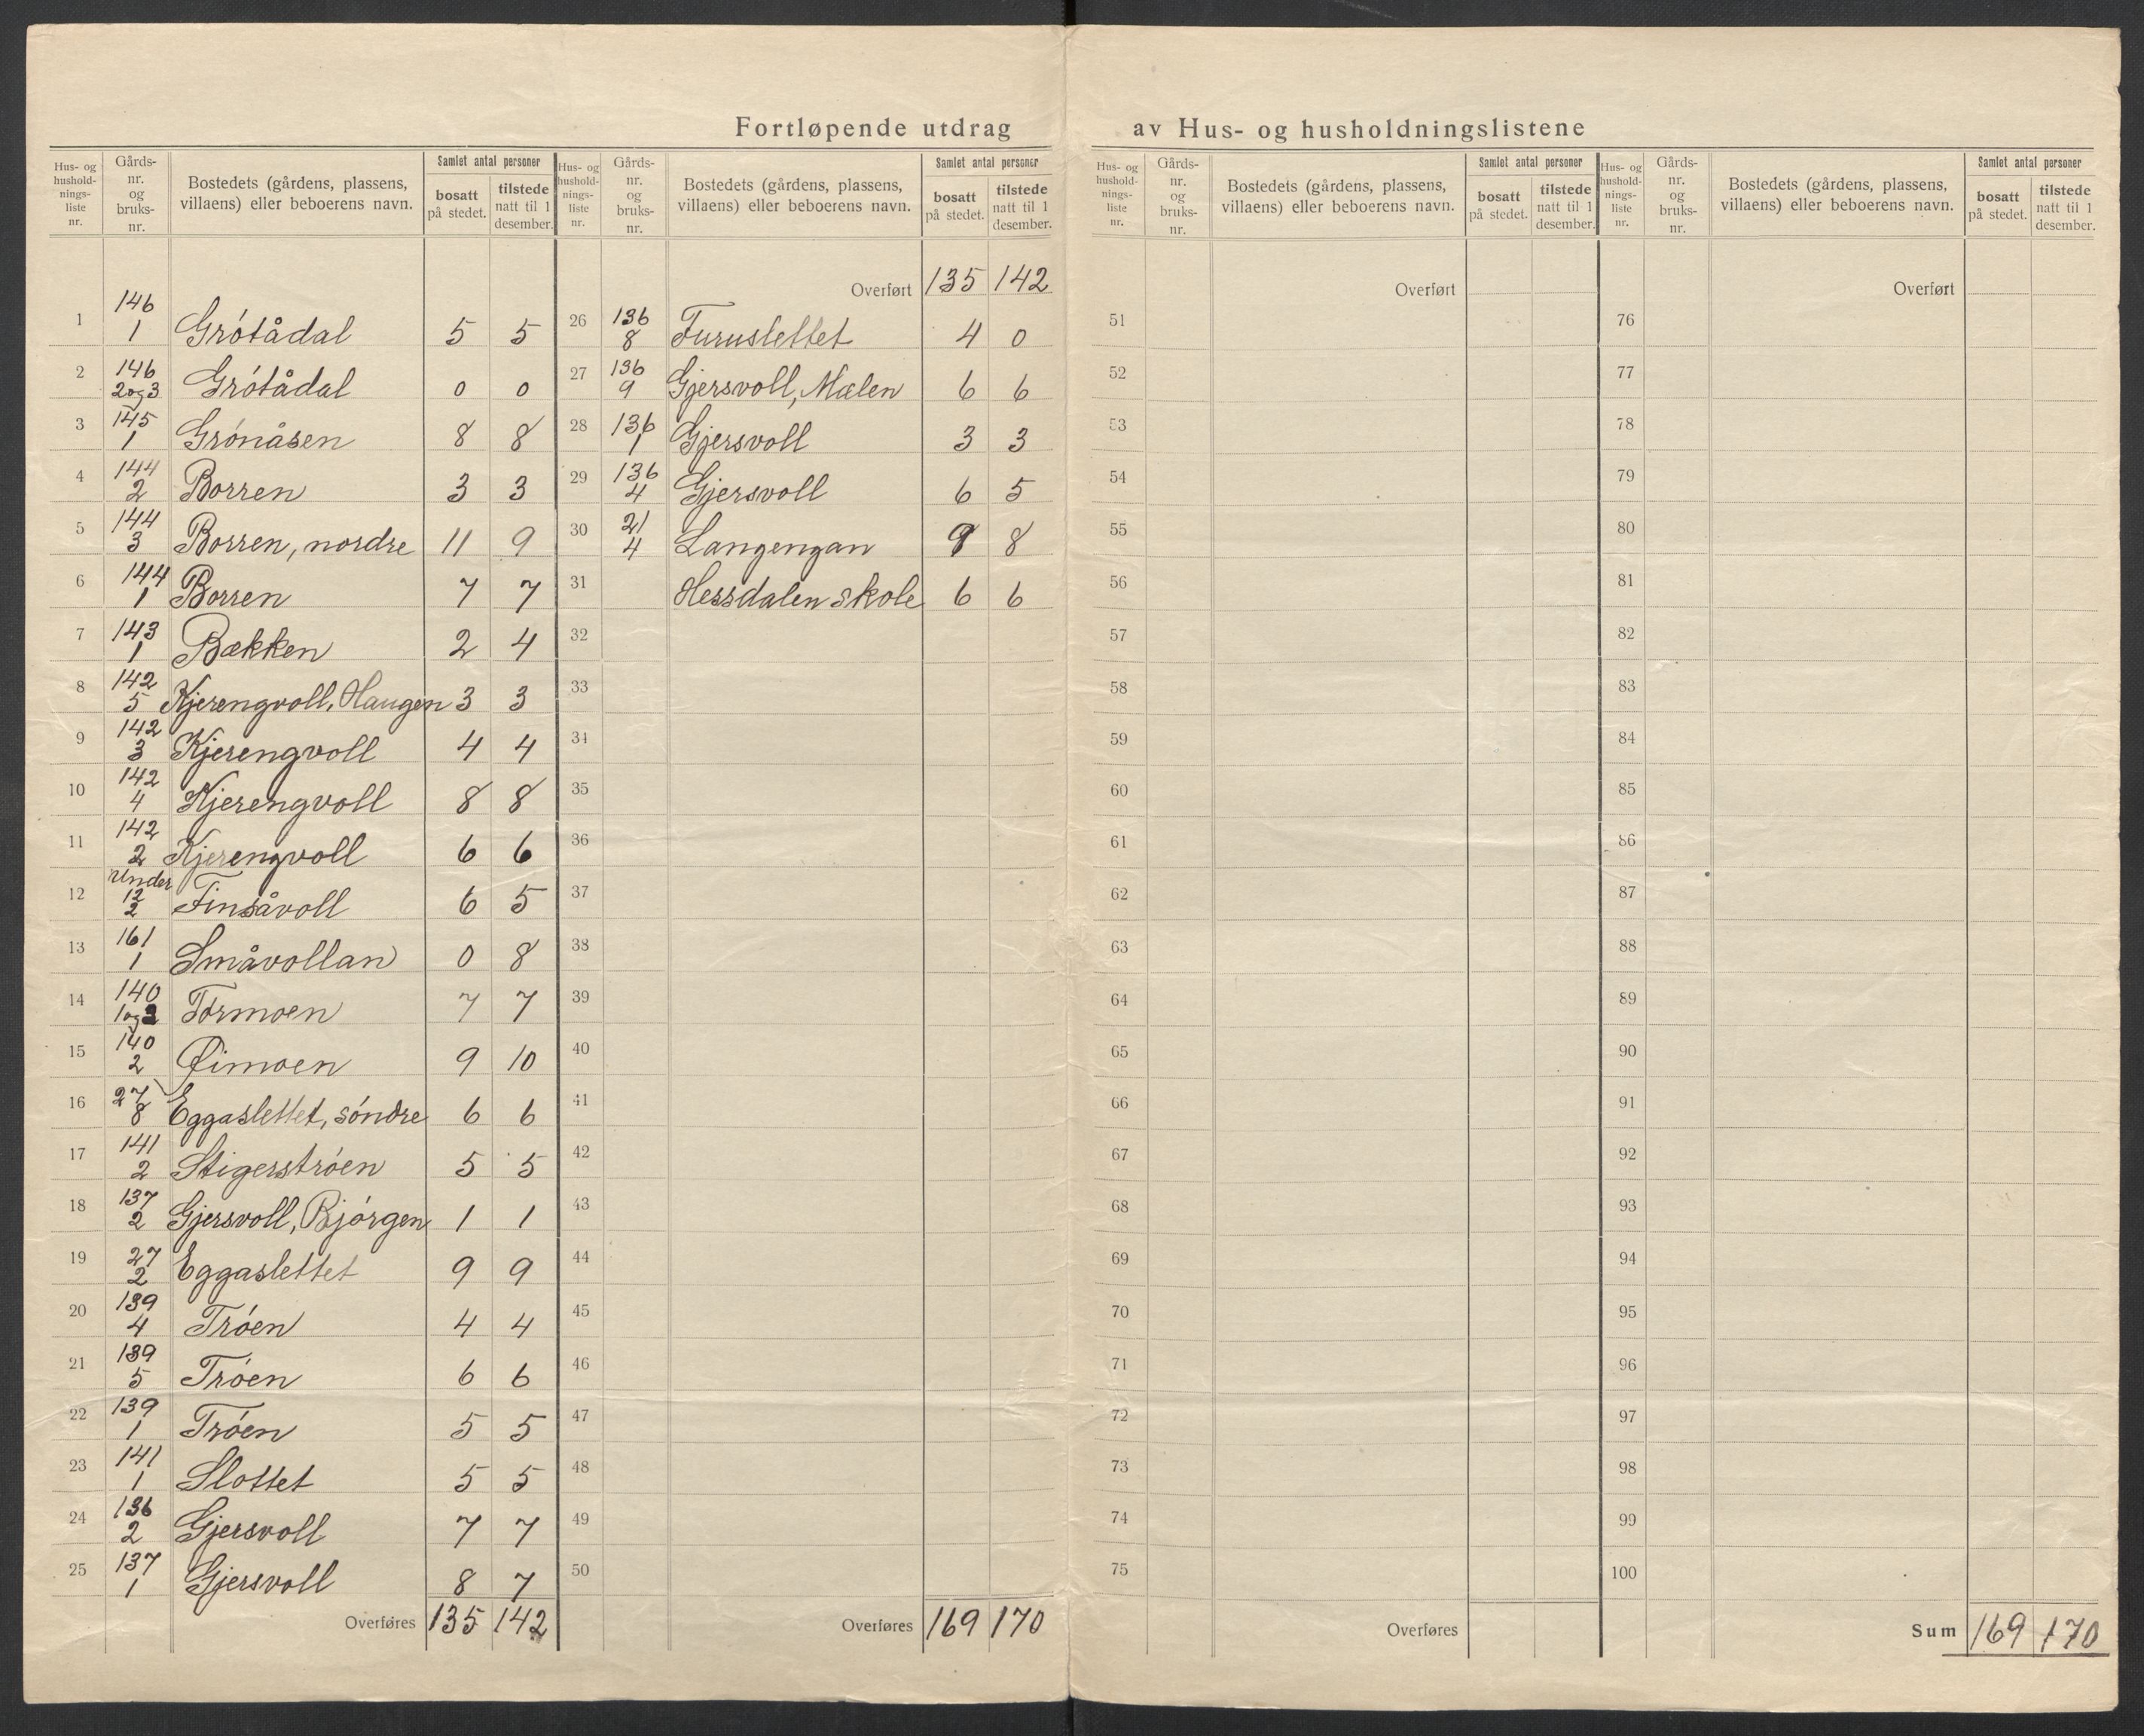 Fortløpende utdrag av Hus- og husholdningslistene
Hus- og hushold-nings-liste nr. Gårds-nr. og bruks-nr. Bostedets (gårdens, plassens, villaens) eller beboerens navn. Samlet antal personer bosatt på stedet. tilstede natt til 1 desember.
1 146 1 Grótådal 5 5
2 146 2og3 Grótådal 0 0
3 145 1 Grónåsen 8 8
4 144 2 Borren 3 3
5 144 3 Borren, nordre 11 9
6 144 1 Borren 7 7
7 143 1 Bækken 2 4
8 142 5 Kjerengvoll, Haugen 3 3
9 142 3 Kjerengvoll 4 4
10 142 4 Kjerengvoll 8 8
11 142 2 Kjerengvoll 6 6
12 Under 12 2 Finsåvoll 6 5
13 161 1 Småvollan 0 8
14 140 1og2 Tormoen 7 7
15 140 2 Øimoen 9 10
16 27 8 Eggaslettet, sóndre 6 6
17 141 2 Stigerstróen 5 5
18 137 2 Gjersvoll, Bjórgen 1 1
19 27 2 Eggaslettet 9 9
20 139 4 Tróen 4 4
21 139 5 Tróen 6 6
22 139 1 Tróen 5 5
23 141 1 Slottet 5 5
24 136 2 Gjersvoll 7 7
25 137 1 Gjersvoll 8 7
Overføres 135 142
Hus- og hushold-nings-liste nr. Gårds-nr. og bruks-nr. Bostedets (gårdens, plassens, villaens) eller beboerens navn. Samlet antal personer bosatt på stedet. tilstede natt til 1 desember.
Overført 135 142
26 136 8 Furuslettet 4 0
27 136 9 Gjersvoll, Mælen 6 6
28 136 1 Gjersvoll 3 3
29 136 4 Gjersvoll 6 5
30 21 4 Langengan 9 8
31 Hessdalen skole 6 6
32
33
34
35
36
37
38
39
40
41
42
43
44
45
46
47
48
49
50
Overføres 169 170
Hus- og hushold-nings-liste nr. Gårds-nr. og bruks-nr. Bostedets (gårdens, plassens, villaens) eller beboerens navn. Samlet antal personer bosatt på stedet. tilstede natt til 1 desember.
Overført
51
52
53
54
55
56
57
58
59
60
61
62
63
64
65
66
67
68
69
70
71
72
73
74
75
Overføres
Hus- og hushold-nings-liste nr. Gårds-nr. og bruks-nr. Bostedets (gårdens, plassens, villaens) eller beboerens navn. Samlet antal personer bosatt på stedet. tilstede natt til 1 desember.
Overført
76
77
78
79
80
81
82
83
84
85
86
87
88
89
90
91
92
93
94
95
96
97
98
99
100
Sum 169 170